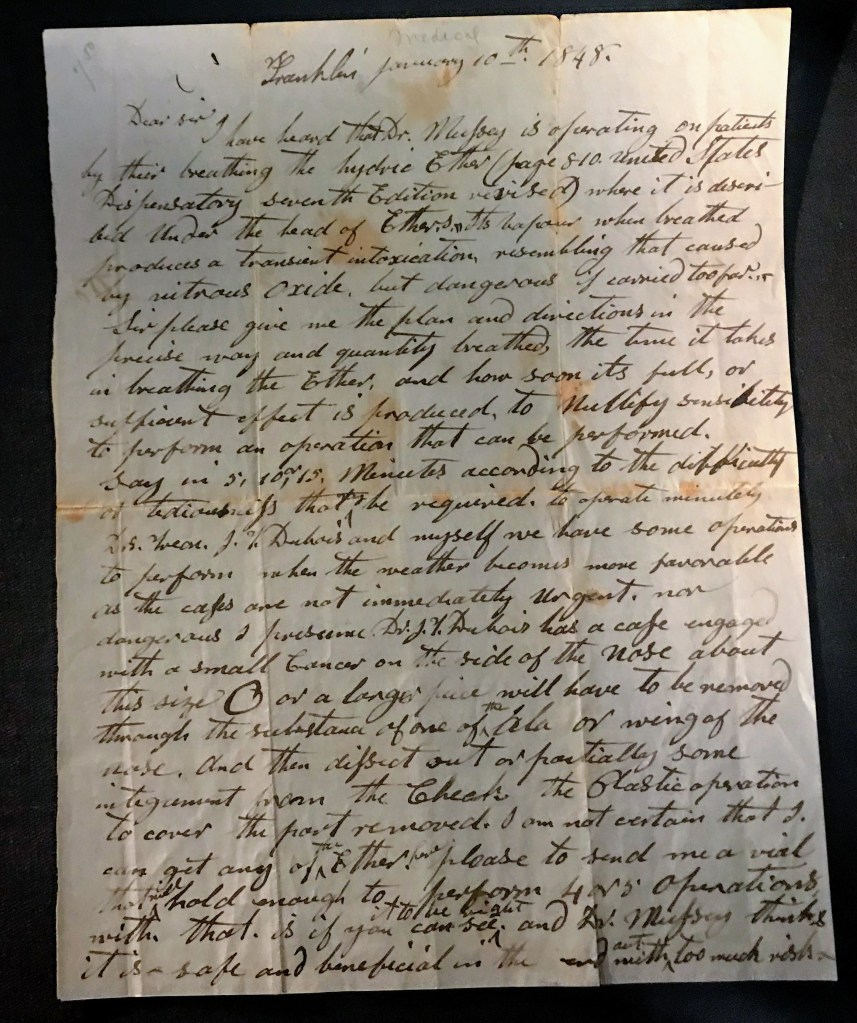 Medical
Franklin January 10th. 1848.
Dear sir I have heard that Dr. Mussey is operating on patients
by their breathing the hydric Ether (page 810. United States
Dispensatory seventh Edition revised) where it is descri-
bed Under the head of Ethers. Its vapour when breathed
produces a transient intoxication, resembling that caused
by nitrous Oxide. but dangerous if carried too far.
Sir please give me the plan and directions in the
precise way and quantity breathed, the time it takes
in breathing the Ether, and how soon its full, or
sufficient effect is produced, to Nullify sensibility
to perform an operation that can be performed.
Say in 5, 10, or 15, Minutes according to the difficulty
or tediousness that be required. to operate minutely
Drs. J. V. Dubois and myself we have some operations
to perform when the weather becomes more favorable
as the cases are not immediately Urgent. nor
dangerous I presume. Dr. J. V. Dubois has a case engaged
with a small Cancer on the side of the Nose about
this size O or a larger piece will have to be removed
through the substance of one of the Ala or wing of the
nose. And then dissect out or partially some
integument from the Cheek the Plastic operation
to cover the part removed. I am not certain that I.
can get any of the Ether. please to send me a vial
that will hold enough to perform 4 or 5 Operations
with. that. is if you can see it to be right. and Dr. Mussey thinks
it is safe and beneficial in the end with out too much risk